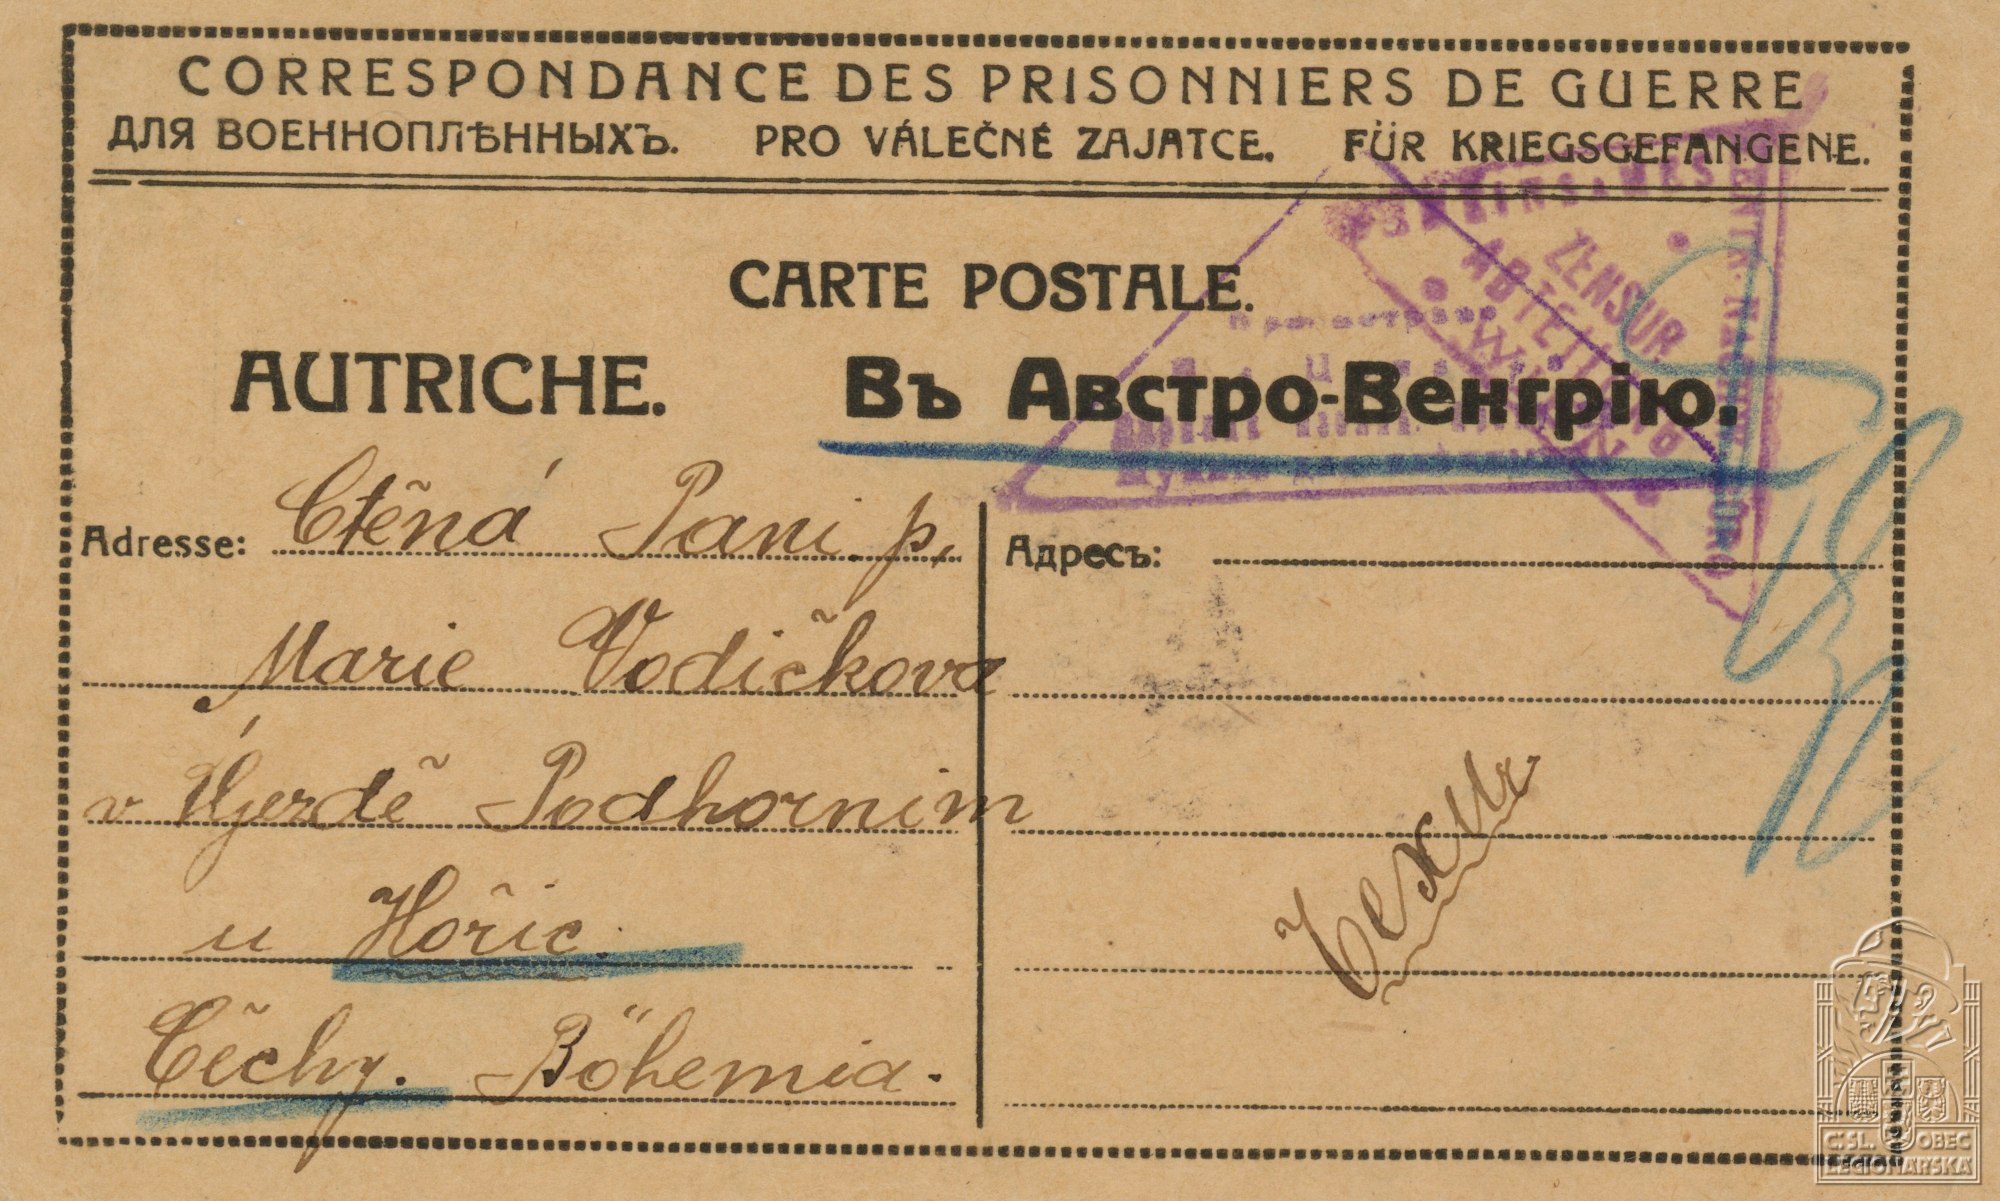 CORRESPONDANCE DES PRISONNIERS DE GUERRE
ДЛЯ ВОЕННОПЛѢННЫХЪ. PRO VÁLEČNÉ ZAJATCE. FÜR KRIEGSGEFANGENE.
CARTE POSTALE.
AUTRICHE. Въ Австро-Венгрію.
ZENSUR
ABTEILUNG
WIEN
Adresse: Ctěná Pani p.
Marie Vodičkova
v Újezdě Podhornim
u Hořic.
Čěchy. Böhemia.
Адресъ:
Чехия
C.SL. OBEC
LEGIONÁŘSKÁ